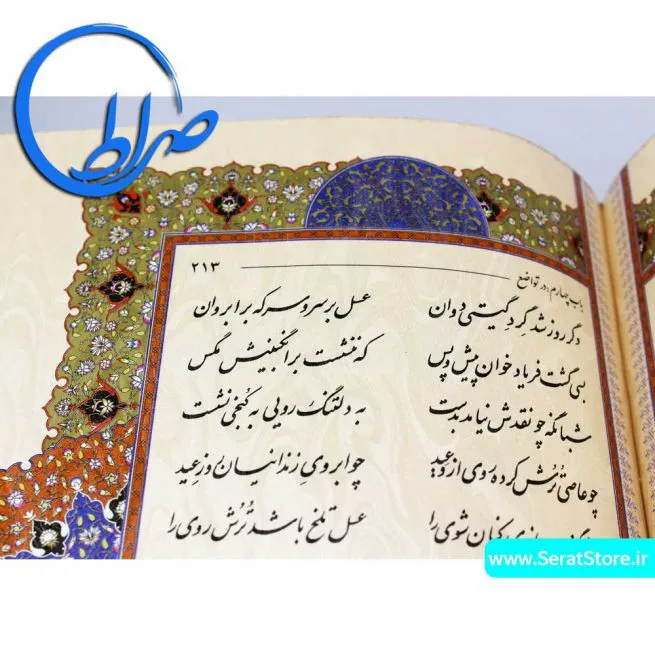 صراط
باب چهارم: در تواضع ۲۱۳
دگر روز شد گرد گیتی دوان عسل بر سر و سرکه بر ابروان
بسی گشت فریاد خوان پیش و پس که ننشست بر انگبینش مگس
شبانگه چو نقدش نیامد بدست به دلتنگ رویی به کنجی نشست
چو عاصی ترش کرده روی از وعید چو ابروی زندانیان روز عید
شوی را عسل تلخ باشد ترش روی را
www.SeratStore.ir